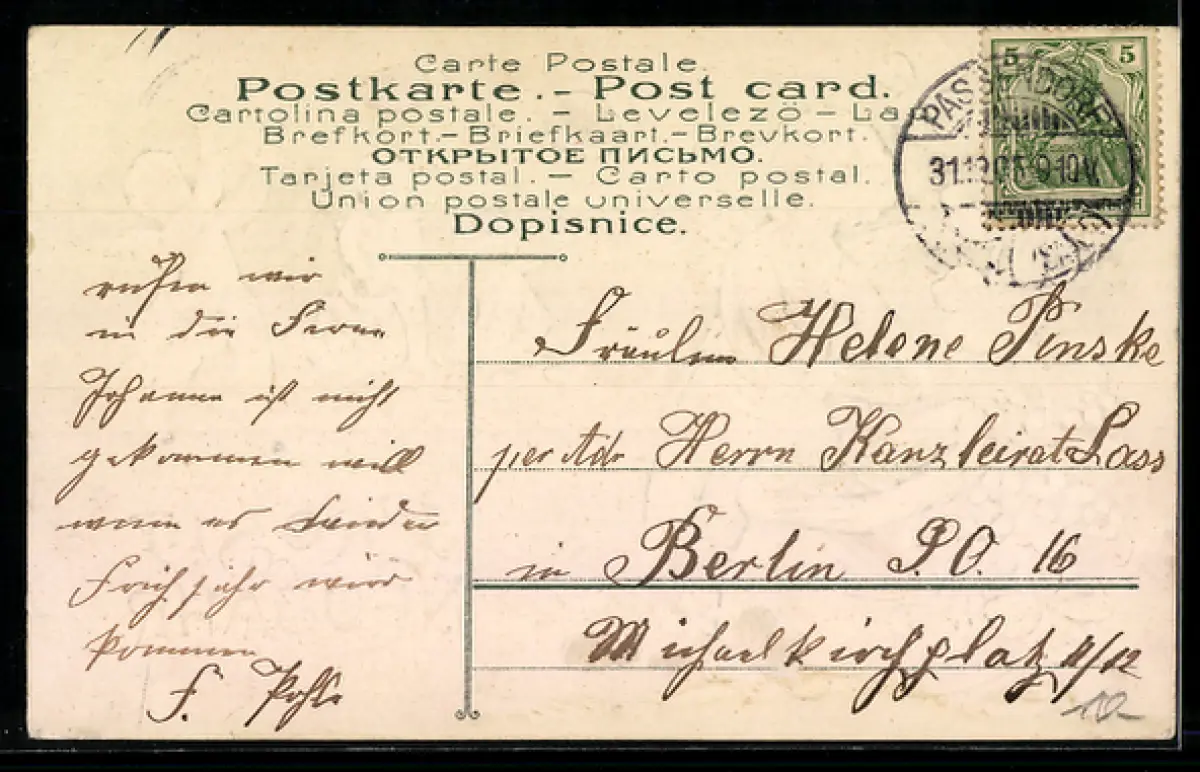 Carte Postale.
Postkarte. – Post card.
Cartolina postale. – Levelezö – La
Brefkort. – Briefkaart. – Brevkort.
ОТКРЫТОЕ ПИСЬМО.
Tarjeta postal. – Carto postal.
Union postale universelle.
Dopisnice.
5 5
PASSENDORF
31.12.05 9-10V.
rufen wir
in die Ferne
Johanne ist nicht
gekommen will
wenn es wieder
Frühjahr wird
kommen
F. Pohle
Fräulein Helene Pinske
per Adr Herrn Kanzleirat Lass
in Berlin S.O. 16
Michaelkirchplatz 11/12
10-